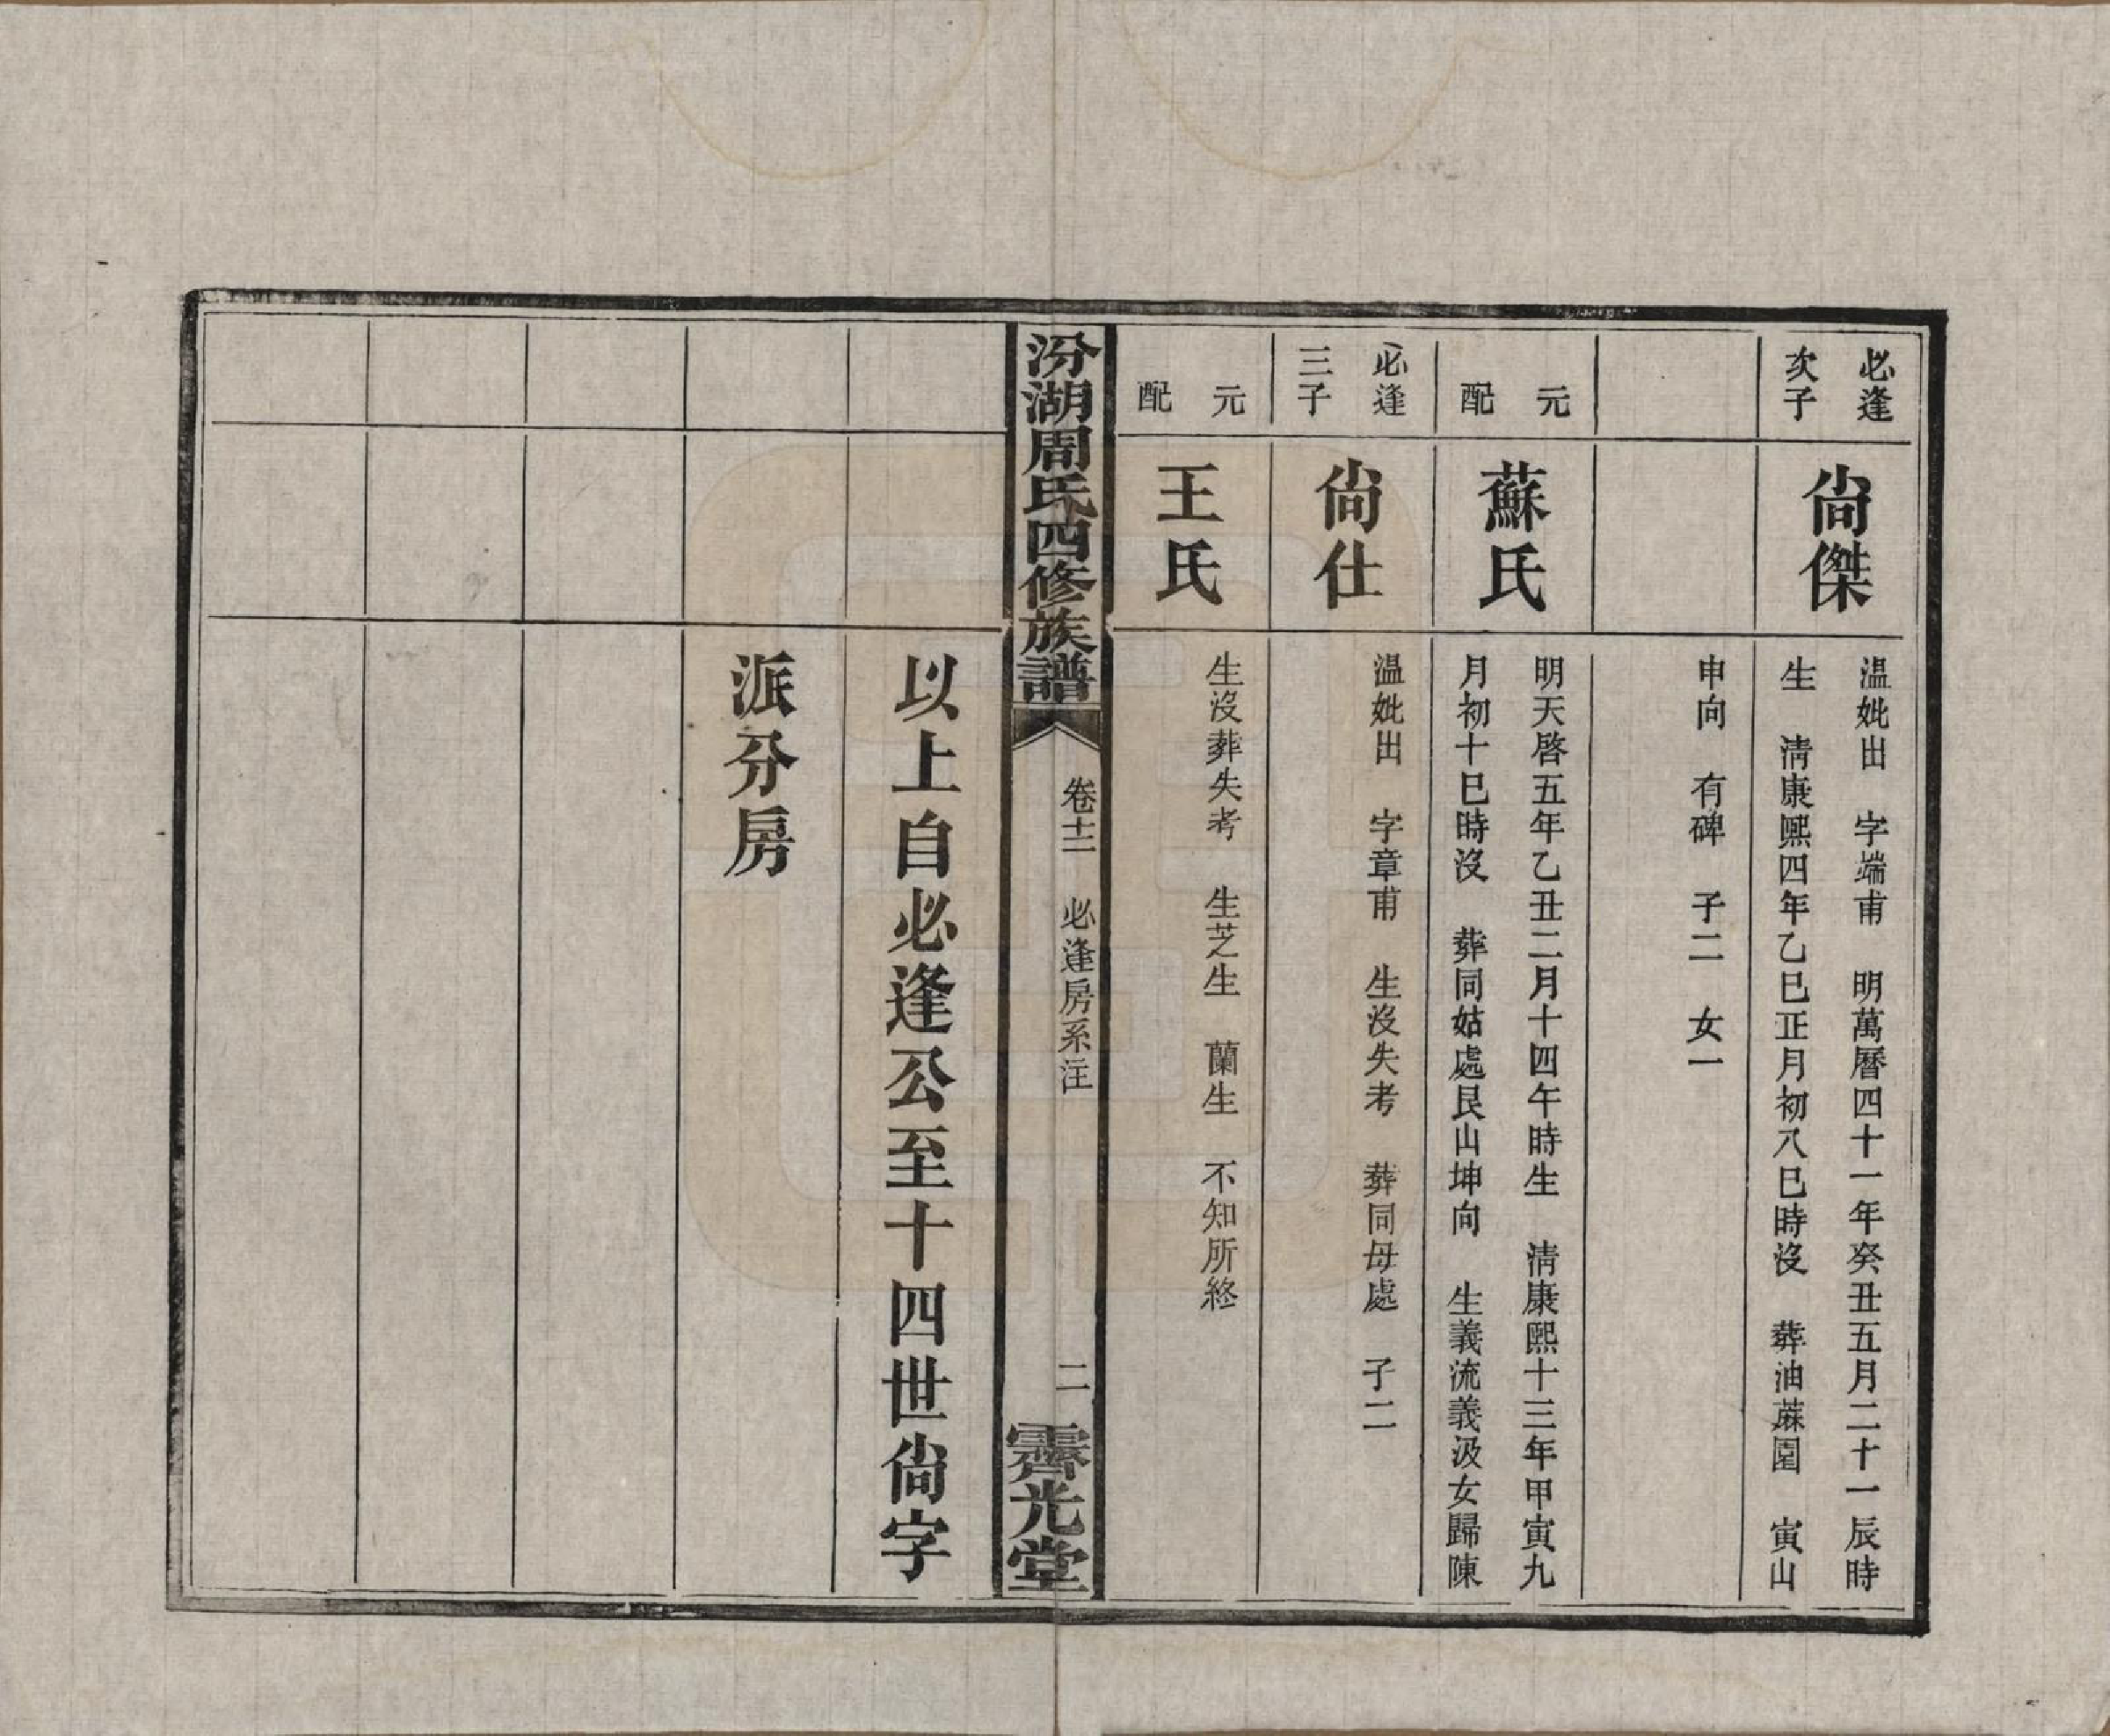 必逢
次子
尙傑
温妣出　字端甫　明萬曆四十一年癸丑五月二十一辰時
生　淸康熙四年乙巳正月初八巳時沒　葬油蔴園　寅山
申向　有碑　子二　女一
元
配
蘇氏
明天啓五年乙丑二月十四午時生　淸康熙十三年甲寅九
月初十巳時沒　葬同姑處艮山坤向　生義流義汲女歸陳
必逢
三子
尙仕
温妣出　字章甫　生沒失考　葬同母處　子二
元
配
王氏
生沒葬失考　生芝生　蘭生　不知所終
汾湖周氏四修族譜
卷十二　必逢房系注
二
霽光堂
以上自必逢公至十四世尙字
派分房